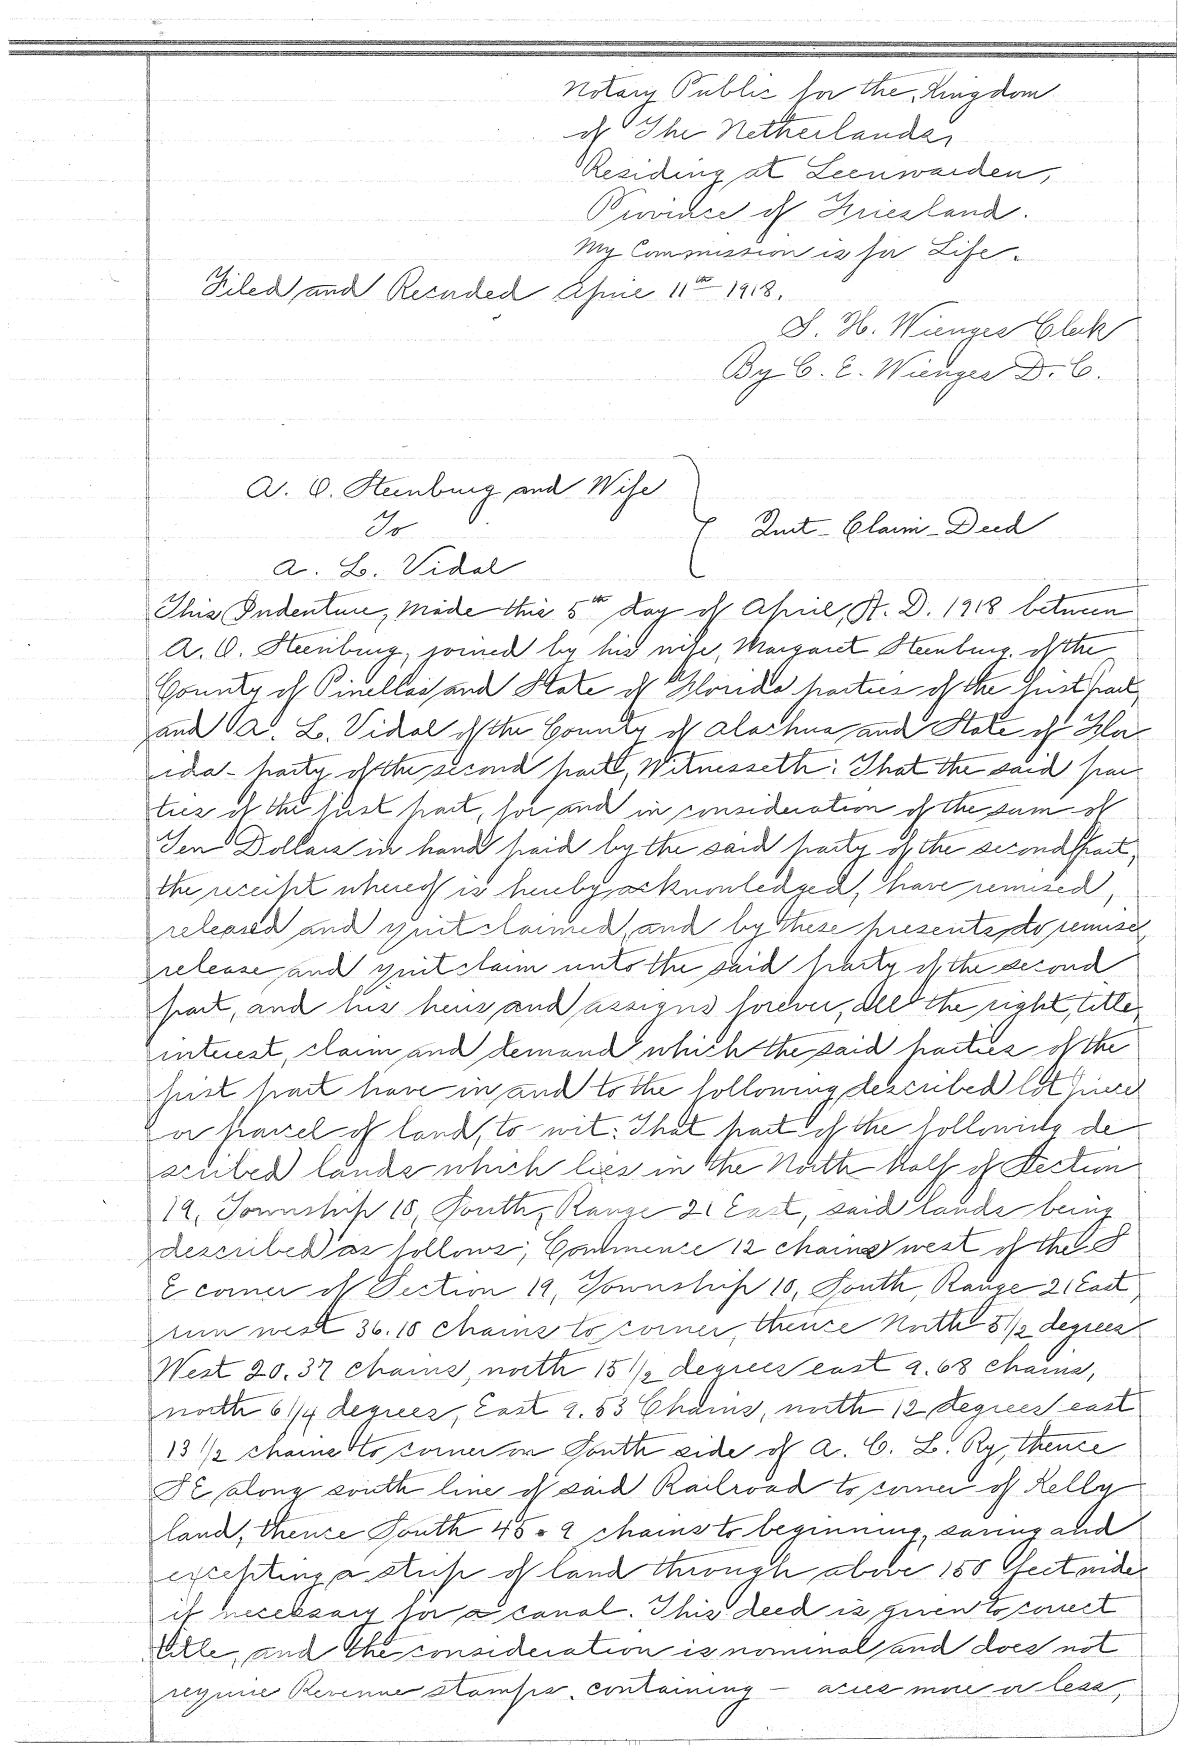 Notary Public for the Kingdom
of The Netherlands,
Residing at Leeuwarden,
Province of Friesland.
My Commission is for Life.
Filed and Recorded April 11th 1918.
S. H. Wienges Clerk
By C. E. Wienges D. C.
A. O. Steenburg and Wife
To
Quit-Claim-Deed
A. L. Vidal
This Indenture, Made this 5th day of April, A. D. 1918 between
A. O. Steenburg, joined by his wife, Margaret Steenburg, of the
County of Pinellas and State of Florida parties of the first part,
and A. L. Vidal of the County of Alachua and State of Flor
ida - party of the second part, Witnesseth: That the said par
ties of the first part, for and in consideration of the sum of
Ten Dollars in hand paid by the said party of the second part,
the receipt whereof is hereby acknowledged, have remised,
released and quitclaimed, and by these presents do remise,
release and quitclaim unto the said party of the second
part, and his heirs and assigns forever, all the right, title,
interest, claim and demand which the said parties of the
first part have in and to the following described lot piece
or parcel of land, to wit: That part of the following de
scribed lands which lies in the North Half of Section
19, Township 10, South, Range 21 East, said lands being
described as follows; Commence 12 chains west of the S
E corner of Section 19, Township 10, South, Range 21 East,
run west 36.10 chains to corner, thence North 5 1/2 degrees
West 20.37 chains, north 15 1/2 degrees east 9.68 chains,
north 6 1/4 degrees, East 9.53 Chains, north 12 degrees east
13 1/2 chains to corner on South side of A. C. L. Ry, thence
SE along south line of said Railroad to corner of Kelly
land, thence South 45.9 chains to beginning, saving and
excepting a strip of land through above 150 feet wide
if necessary for a canal. This deed is given to correct
title, and the consideration is nominal and does not
require Revenue stamps. containing - acres more or less,